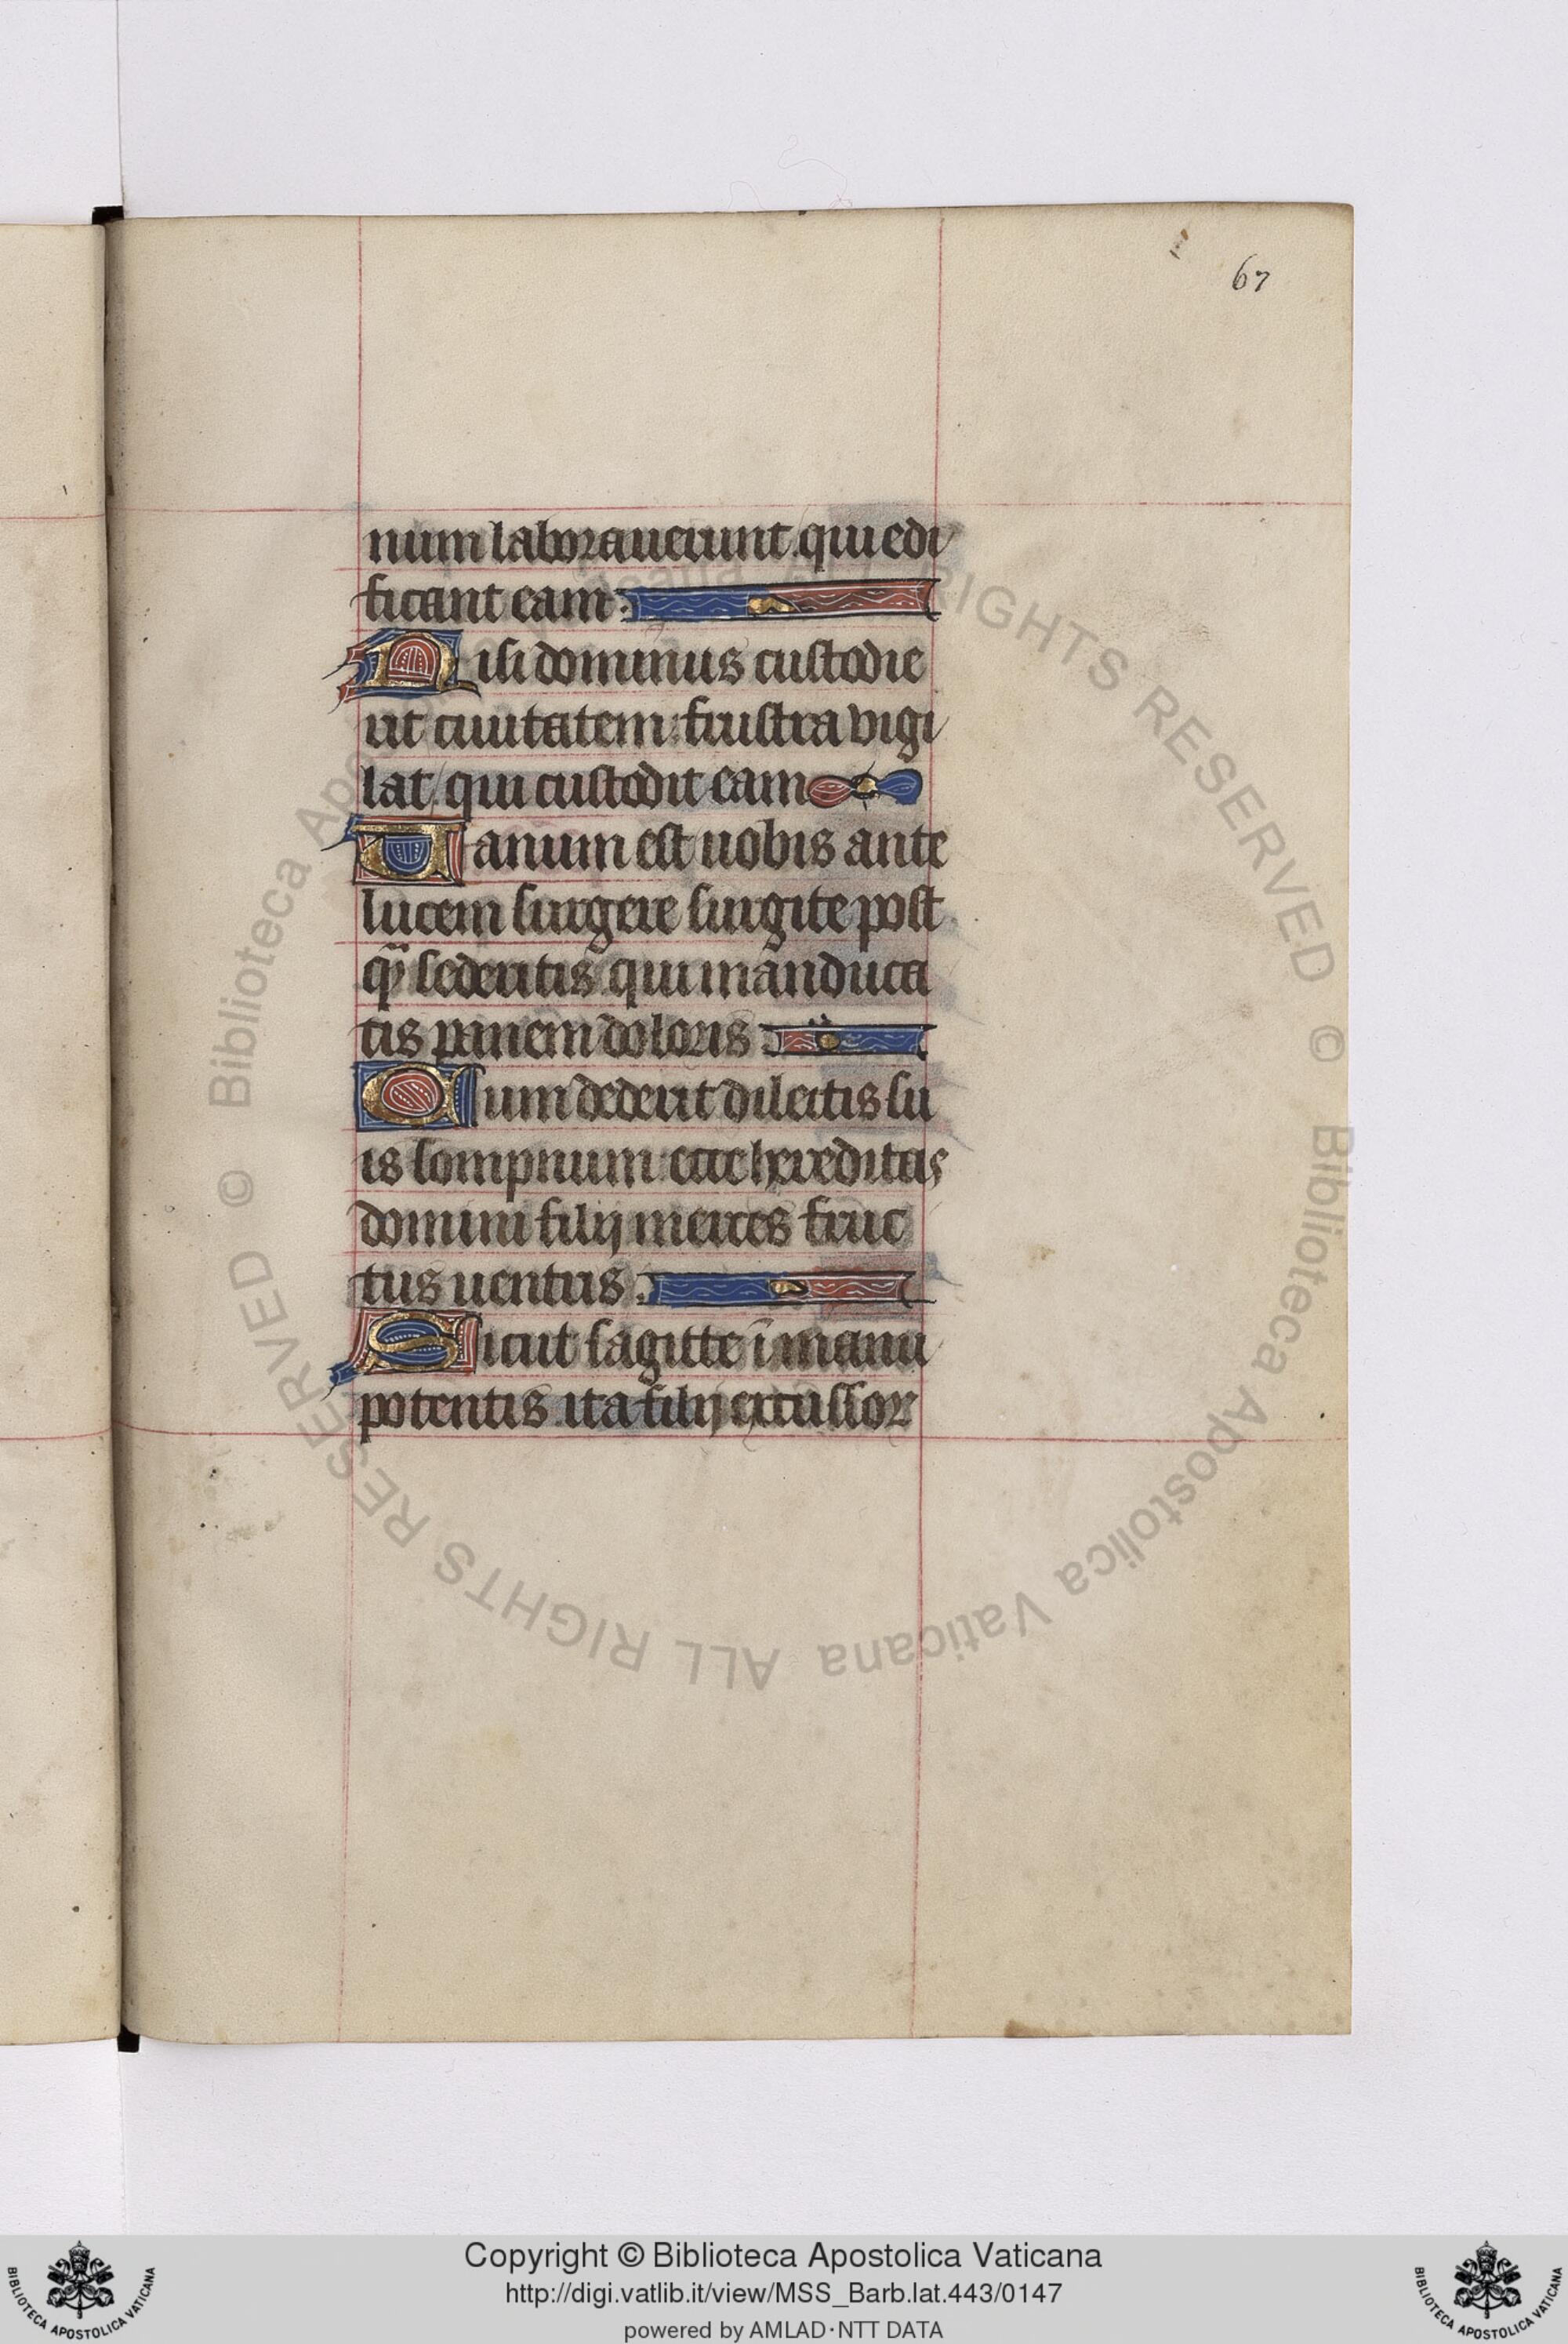 67
num laborauerunt. qui edi
ficant eam.
Nisi dominus custodie
rit ciuitatem: frustra vigi
lat/ qui custodit eam
Vanum est uobis ante
lucem surgere surgite post
q̈ sederitis. qui manduca
tis panem doloris
Cum dederit dilectis su
is sompnum: ecce hereditas
domini filij merces fruc
tus uentris.
Sicut sagitte ī manu
potentis. ita filij excussor
© Biblioteca Apostolica Vaticana ALL RIGHTS RESERVED
© Biblioteca Apostolica Vaticana ALL RIGHTS RESERVED
BIBLIOTECA APOSTOLICA VATICANA
Copyright © Biblioteca Apostolica Vaticana
http://digi.vatlib.it/view/MSS_Barb.lat.443/0147
powered by AMLAD·NTT DATA
BIBLIOTECA APOSTOLICA VATICANA